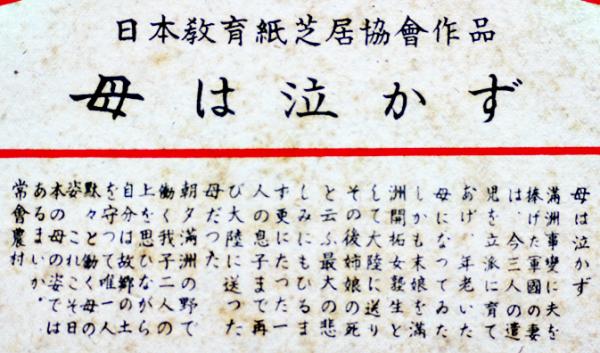 日本教育紙芝居協會作品
母は泣かず
母は泣かず
滿洲事變に夫を
捧げた軍國の妻
は、今三人の遺
兒を立派に育て
あげ、年老いた
母になつてゐた
しかも末娘を滿
洲開拓女發生と
して大陸に送り
その後姉娘の死
と云ふ最大の悲
しみにもひるま
ず更にたつた一
人の息子まで再
び大陸に送つた
母だつた
朝夕滿洲の野で
働く我子二人の
上を思ひながら
自分は故鄕の土
を守つて唯一人
默々と働く母の
姿、これこそ日
本の母の姿では
あるまいか。
常會農村